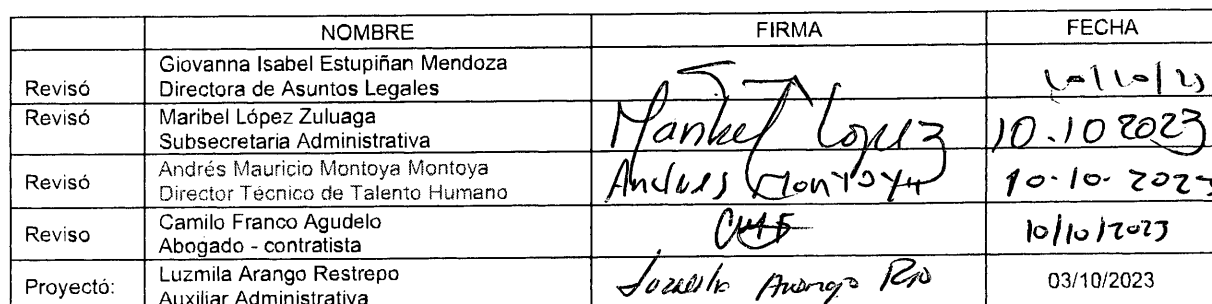 NOMBRE FIRMA FECHA
Giovanna Isabel Estupiñan Mendoza
Revisó Directora de Asuntos Legales 10/10/23
Revisó Maribel López Zuluaga
Subsecretaria Administrativa Maribel López 10.10 2023
Andrés Mauricio Montoya Montoya
Revisó Director Técnico de Talento Humano Andrés Montoya 10-10-2023
Camilo Franco Agudelo
Reviso Abogado - contratista 10/10/2023
Luzmila Arango Restrepo
Proyectó: Auxiliar Administrativa Luzmila Arango 03/10/2023